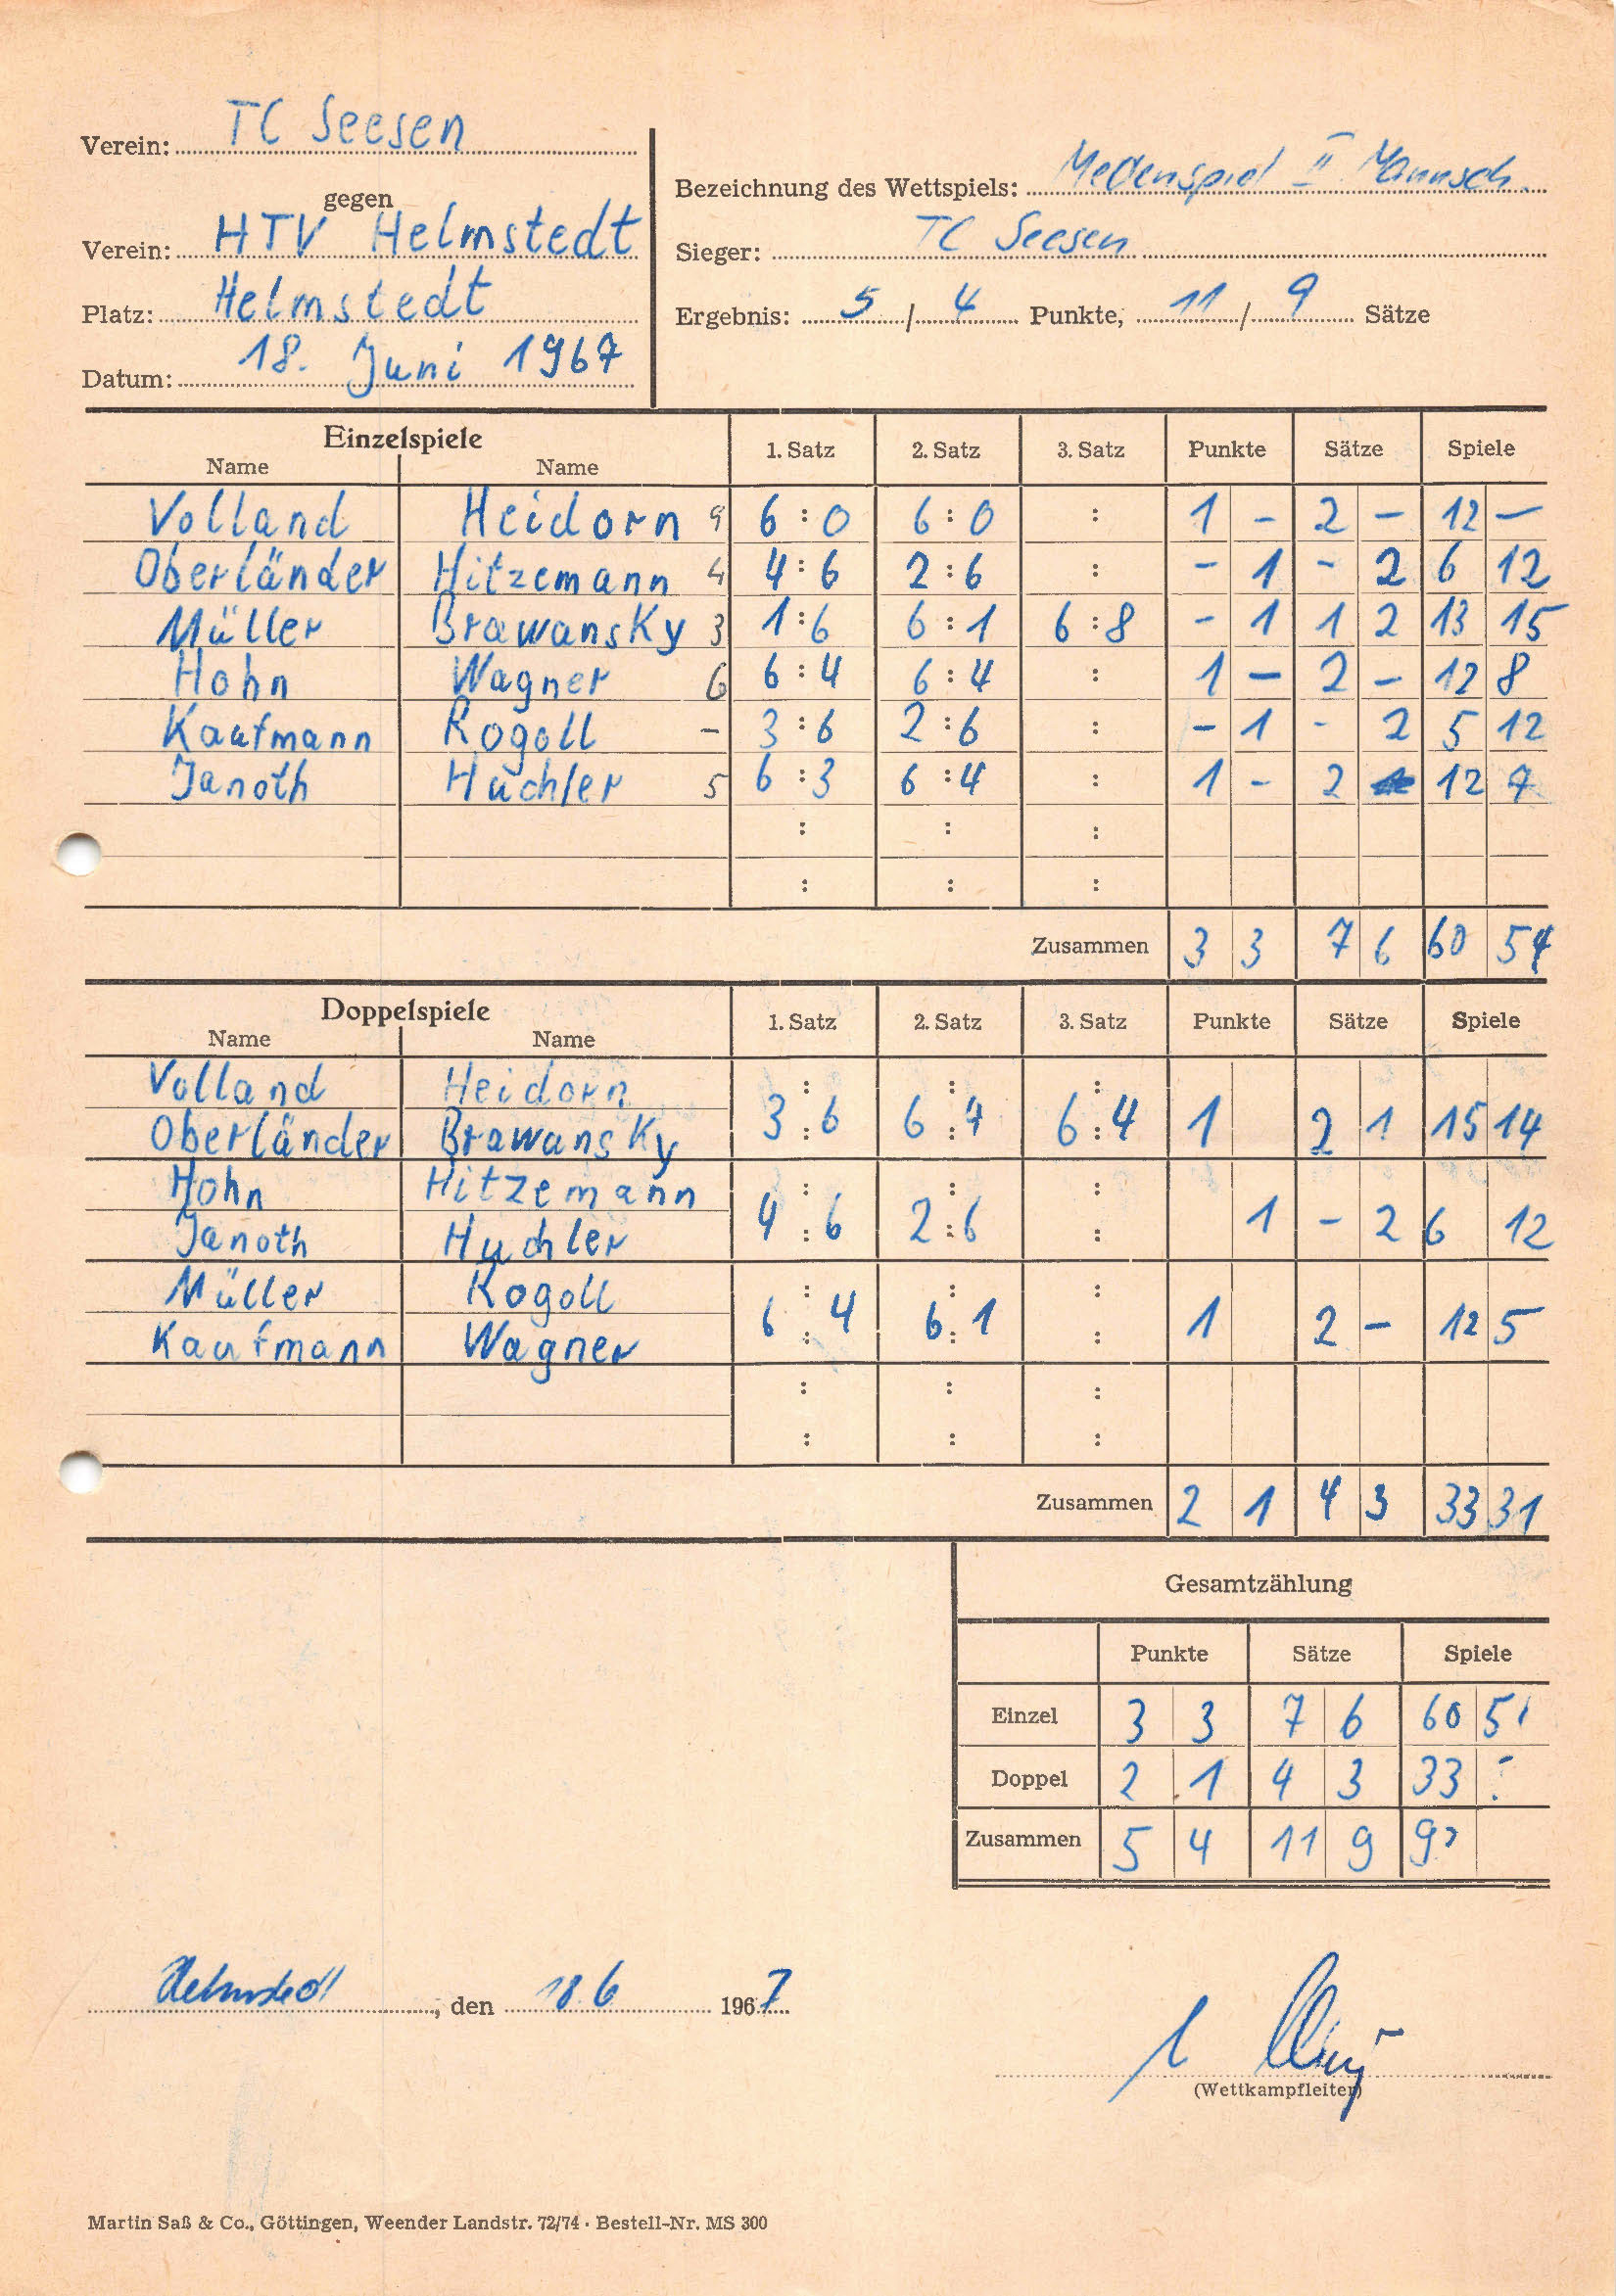 Verein: TC Seesen
gegen
Verein: HTV Helmstedt
Platz: Helmstedt
Datum: 18. Juni 1967
Bezeichnung des Wettspiels: Medenspiel II Mannsch.
Sieger: TC Seesen
Ergebnis: 5 / 4 Punkte, 11 / 9 Sätze
Einzelspiele 1. Satz 2. Satz 3. Satz Punkte Sätze Spiele
Name Name
Volland Heidorn 9 6 : 0 6 : 0 : 1 - 2 - 12 -
Oberländer Hitzemann 4 4 : 6 2 : 6 : - 1 - 2 6 12
Müller Brawansky 3 1 : 6 6 : 1 6 : 8 - 1 1 2 13 15
Hohn Wagner 6 6 : 4 6 : 4 : 1 - 2 - 12 8
Kaufmann Rogoll - 3 : 6 2 : 6 : - 1 - 2 5 12
Janoth Huchler 5 6 : 3 6 : 4 : 1 - 2 12 7
: : :
: : :
Zusammen 3 3 7 6 60 54
Doppelspiele 1. Satz 2. Satz 3. Satz Punkte Sätze Spiele
Name Name
Volland Heidorn
Oberländer Brawansky 3 : 6 6 : 4 6 : 4 1 2 1 15 14
Hohn Hitzemann
Janoth Huchler 4 : 6 2 : 6 : 1 - 2 6 12
Müller Rogoll
Kaufmann Wagner 6 : 4 6 : 1 : 1 2 - 12 5
: : :
: : :
Zusammen 2 1 4 3 33 31
Gesamtzählung
Punkte Sätze Spiele
Einzel 3 3 7 6 60
Doppel 2 1 4 3 33
Zusammen 5 4 11 9
Helmstedt, den 18.6 1967
(Wettkampfleiter)
Martin Saß & Co., Göttingen, Weender Landstr. 72/74 · Bestell-Nr. MS 300